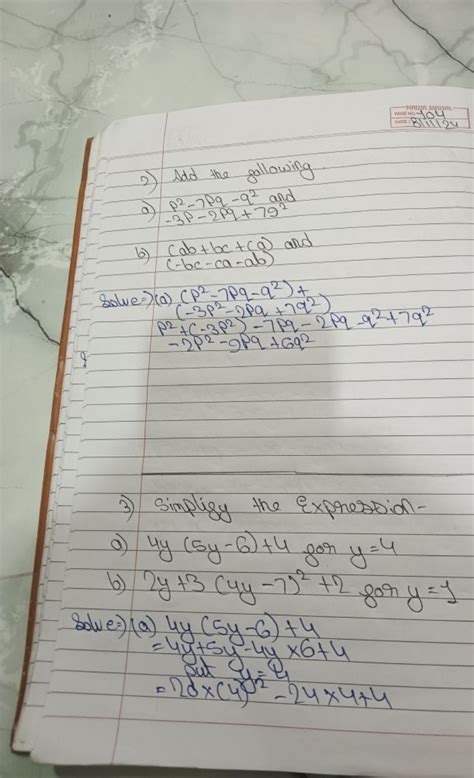 PAGE NO. 104
DATE: 8/11/24
2) Add the following
a) p²-7pq-q² and
-3p-2pq+7q²
b) (ab+bc+ca) and
(-bc-ca-ab)
Solve=) (a) (p²-7pq-q²) +
(-3p²-2pq+7q²)
p²+(-3p²)-7pq-2pq-q²+7q²
-2p²-9pq+6q²
3) Simplify the Expression-
a) 4y (5y-6)+4 for y=4
b) 2y+3 (4y-7)²+2 for y=1
Solve=) (a) 4y (5y-6)+4
=4y+5y-4y×6+4
put y=4
=20×(4)²-24×4+4